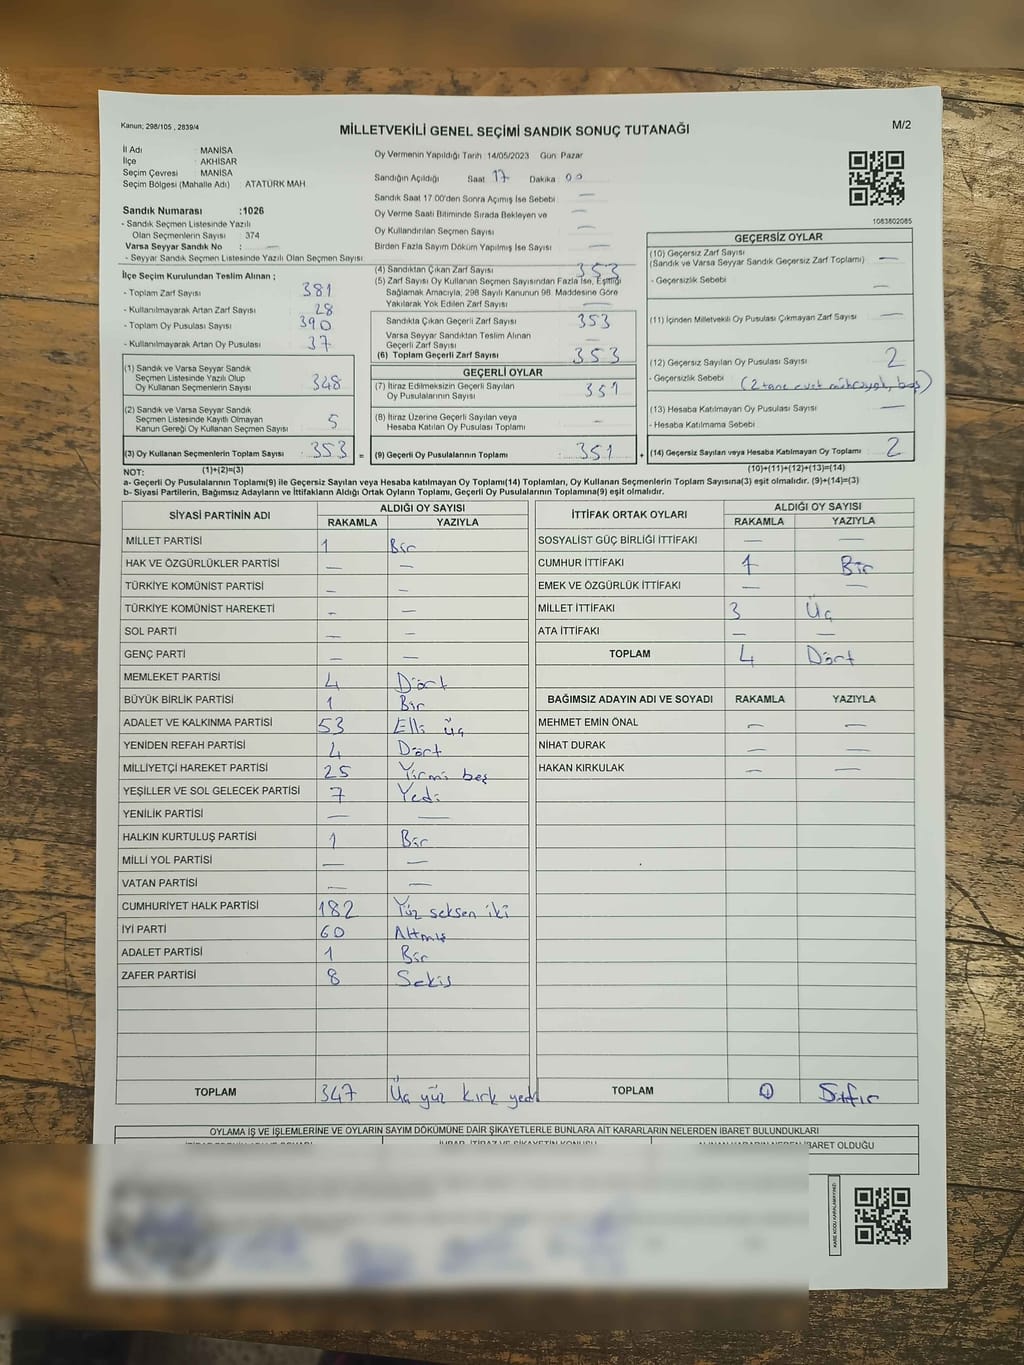 Kanun; 298/105 , 2839/4
MİLLETVEKİLİ GENEL SEÇİMİ SANDIK SONUÇ TUTANAĞI
M/2
İl Adı : MANİSA
İlçe : AKHİSAR
Seçim Çevresi : MANİSA
Seçim Bölgesi (Mahalle Adı) : ATATÜRK MAH
Sandık Numarası :1026
- Sandık Seçmen Listesinde Yazılı
Olan Seçmenlerin Sayısı : 374
Varsa Seyyar Sandık No : —
- Seyyar Sandık Seçmen Listesinde Yazılı Olan Seçmen Sayısı
Oy Vermenin Yapıldığı Tarih :14/05/2023 Gün: Pazar
Sandığın Açıldığı Saat 17 Dakika 00
Sandık Saat 17.00'den Sonra Açımış İse Sebebi —
Oy Verme Saati Bitiminde Sırada Bekleyen ve —
Oy Kullandırılan Seçmen Sayısı —
Birden Fazla Sayım Döküm Yapılmış İse Sayısı —
1083802085
İlçe Seçim Kurulundan Teslim Alınan ;
- Toplam Zarf Sayısı 381
- Kullanılmayarak Artan Zarf Sayısı 28
- Toplam Oy Pusulası Sayısı 390
- Kullanılmayarak Artan Oy Pusulası 37
(1) Sandık ve Varsa Seyyar Sandık
Seçmen Listesinde Yazılı Olup
Oy Kullanan Seçmenlerin Sayısı 348
(2) Sandık ve Varsa Seyyar Sandık
Seçmen Listesinde Kayıtlı Olmayan
Kanun Gereği Oy Kullanan Seçmen Sayısı 5
(3) Oy Kullanan Seçmenlerin Toplam Sayısı : 353 =
(4) Sandıktan Çıkan Zarf Sayısı 353
(5) Zarf Sayısı Oy Kullanan Seçmen Sayısından Fazla İse, Eşitliği
Sağlamak Amacıyla, 298 Sayılı Kanunun 98. Maddesine Göre
Yakılarak Yok Edilen Zarf Sayısı —
Sandıkta Çıkan Geçerli Zarf Sayısı 353
Varsa Seyyar Sandıktan Teslim Alınan
Geçerli Zarf Sayısı —
(6) Toplam Geçerli Zarf Sayısı 353
GEÇERLİ OYLAR
(7) İtiraz Edilmeksizin Geçerli Sayılan
Oy Pusulalarının Sayısı 351
(8) İtiraz Üzerine Geçerli Sayılan veya
Hesaba Katılan Oy Pusulası Toplamı —
(9) Geçerli Oy Pusulalarının Toplamı : 351 +
GEÇERSİZ OYLAR
(10) Geçersiz Zarf Sayısı
(Sandık ve Varsa Seyyar Sandık Geçersiz Zarf Toplamı) —
- Geçersizlik Sebebi —
(11) İçinden Milletvekili Oy Pusulası Çıkmayan Zarf Sayısı —
(12) Geçersiz Sayılan Oy Pusulası Sayısı 2
- Geçersizlik Sebebi (2 tane evet mühürsüz, boş)
(13) Hesaba Katılmayan Oy Pusulası Sayısı —
- Hesaba Katılmama Sebebi
(14) Geçersiz Sayılan veya Hesaba Katılmayan Oy Toplamı : 2
NOT: (1)+(2)=(3) (10)+(11)+(12)+(13)=(14)
a- Geçerli Oy Pusulalarının Toplamı(9) ile Geçersiz Sayılan veya Hesaba katılmayan Oy Toplamı(14) Toplamları, Oy Kullanan Seçmenlerin Toplam Sayısına(3) eşit olmalıdır. (9)+(14)=(3)
b- Siyasi Partilerin, Bağımsız Adayların ve İttifakların Aldığı Ortak Oyların Toplamı, Geçerli Oy Pusulalarının Toplamına(9) eşit olmalıdır.
SİYASİ PARTİNİN ADI ALDIĞI OY SAYISI
RAKAMLA YAZIYLA
MİLLET PARTİSİ 1 Bir
HAK VE ÖZGÜRLÜKLER PARTİSİ — —
TÜRKİYE KOMÜNİST PARTİSİ — —
TÜRKİYE KOMÜNİST HAREKETİ — —
SOL PARTİ — —
GENÇ PARTİ — —
MEMLEKET PARTİSİ 4 Dört
BÜYÜK BİRLİK PARTİSİ 1 Bir
ADALET VE KALKINMA PARTİSİ 53 Elli üç
YENİDEN REFAH PARTİSİ 4 Dört
MİLLİYETÇİ HAREKET PARTİSİ 25 Yirmi beş
YEŞİLLER VE SOL GELECEK PARTİSİ 7 Yedi
YENİLİK PARTİSİ — —
HALKIN KURTULUŞ PARTİSİ 1 Bir
MİLLİ YOL PARTİSİ — —
VATAN PARTİSİ — —
CUMHURİYET HALK PARTİSİ 182 Yüz seksen iki
İYİ PARTİ 60 Altmış
ADALET PARTİSİ 1 Bir
ZAFER PARTİSİ 8 Sekiz
TOPLAM 347 Üç yüz kırk yedi
İTTİFAK ORTAK OYLARI ALDIĞI OY SAYISI
RAKAMLA YAZIYLA
SOSYALİST GÜÇ BİRLİĞİ İTTİFAKI — —
CUMHUR İTTİFAKI 1 Bir
EMEK VE ÖZGÜRLÜK İTTİFAKI — —
MİLLET İTTİFAKI 3 Üç
ATA İTTİFAKI — —
TOPLAM 4 Dört
BAĞIMSIZ ADAYIN ADI VE SOYADI RAKAMLA YAZIYLA
MEHMET EMİN ÖNAL — —
NİHAT DURAK — —
HAKAN KIRKULAK — —
TOPLAM 0 Sıfır
OYLAMA İŞ VE İŞLEMLERİNE VE OYLARIN SAYIM DÖKÜMÜNE DAİR ŞİKAYETLERLE BUNLARA AİT KARARLARIN NELERDEN İBARET BULUNDUKLARI
İBARET OLDUĞU